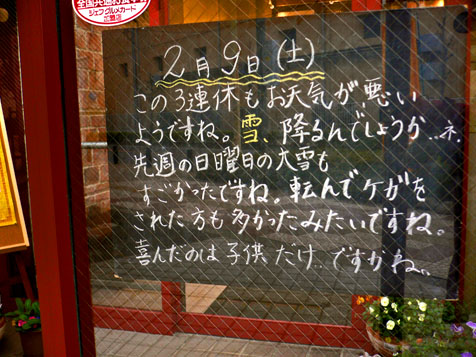 全国共通お食事券
ジェフグルメカード
加盟店
2月9日(土)
この3連休もお天気が悪い
ようですね。雪、降るんでしょうか..ネ.
先週の日曜日の大雪も
すごかったですね。転んでケガを
された方も多かったみたいですね。
喜んだのは子供だけ..ですかね..